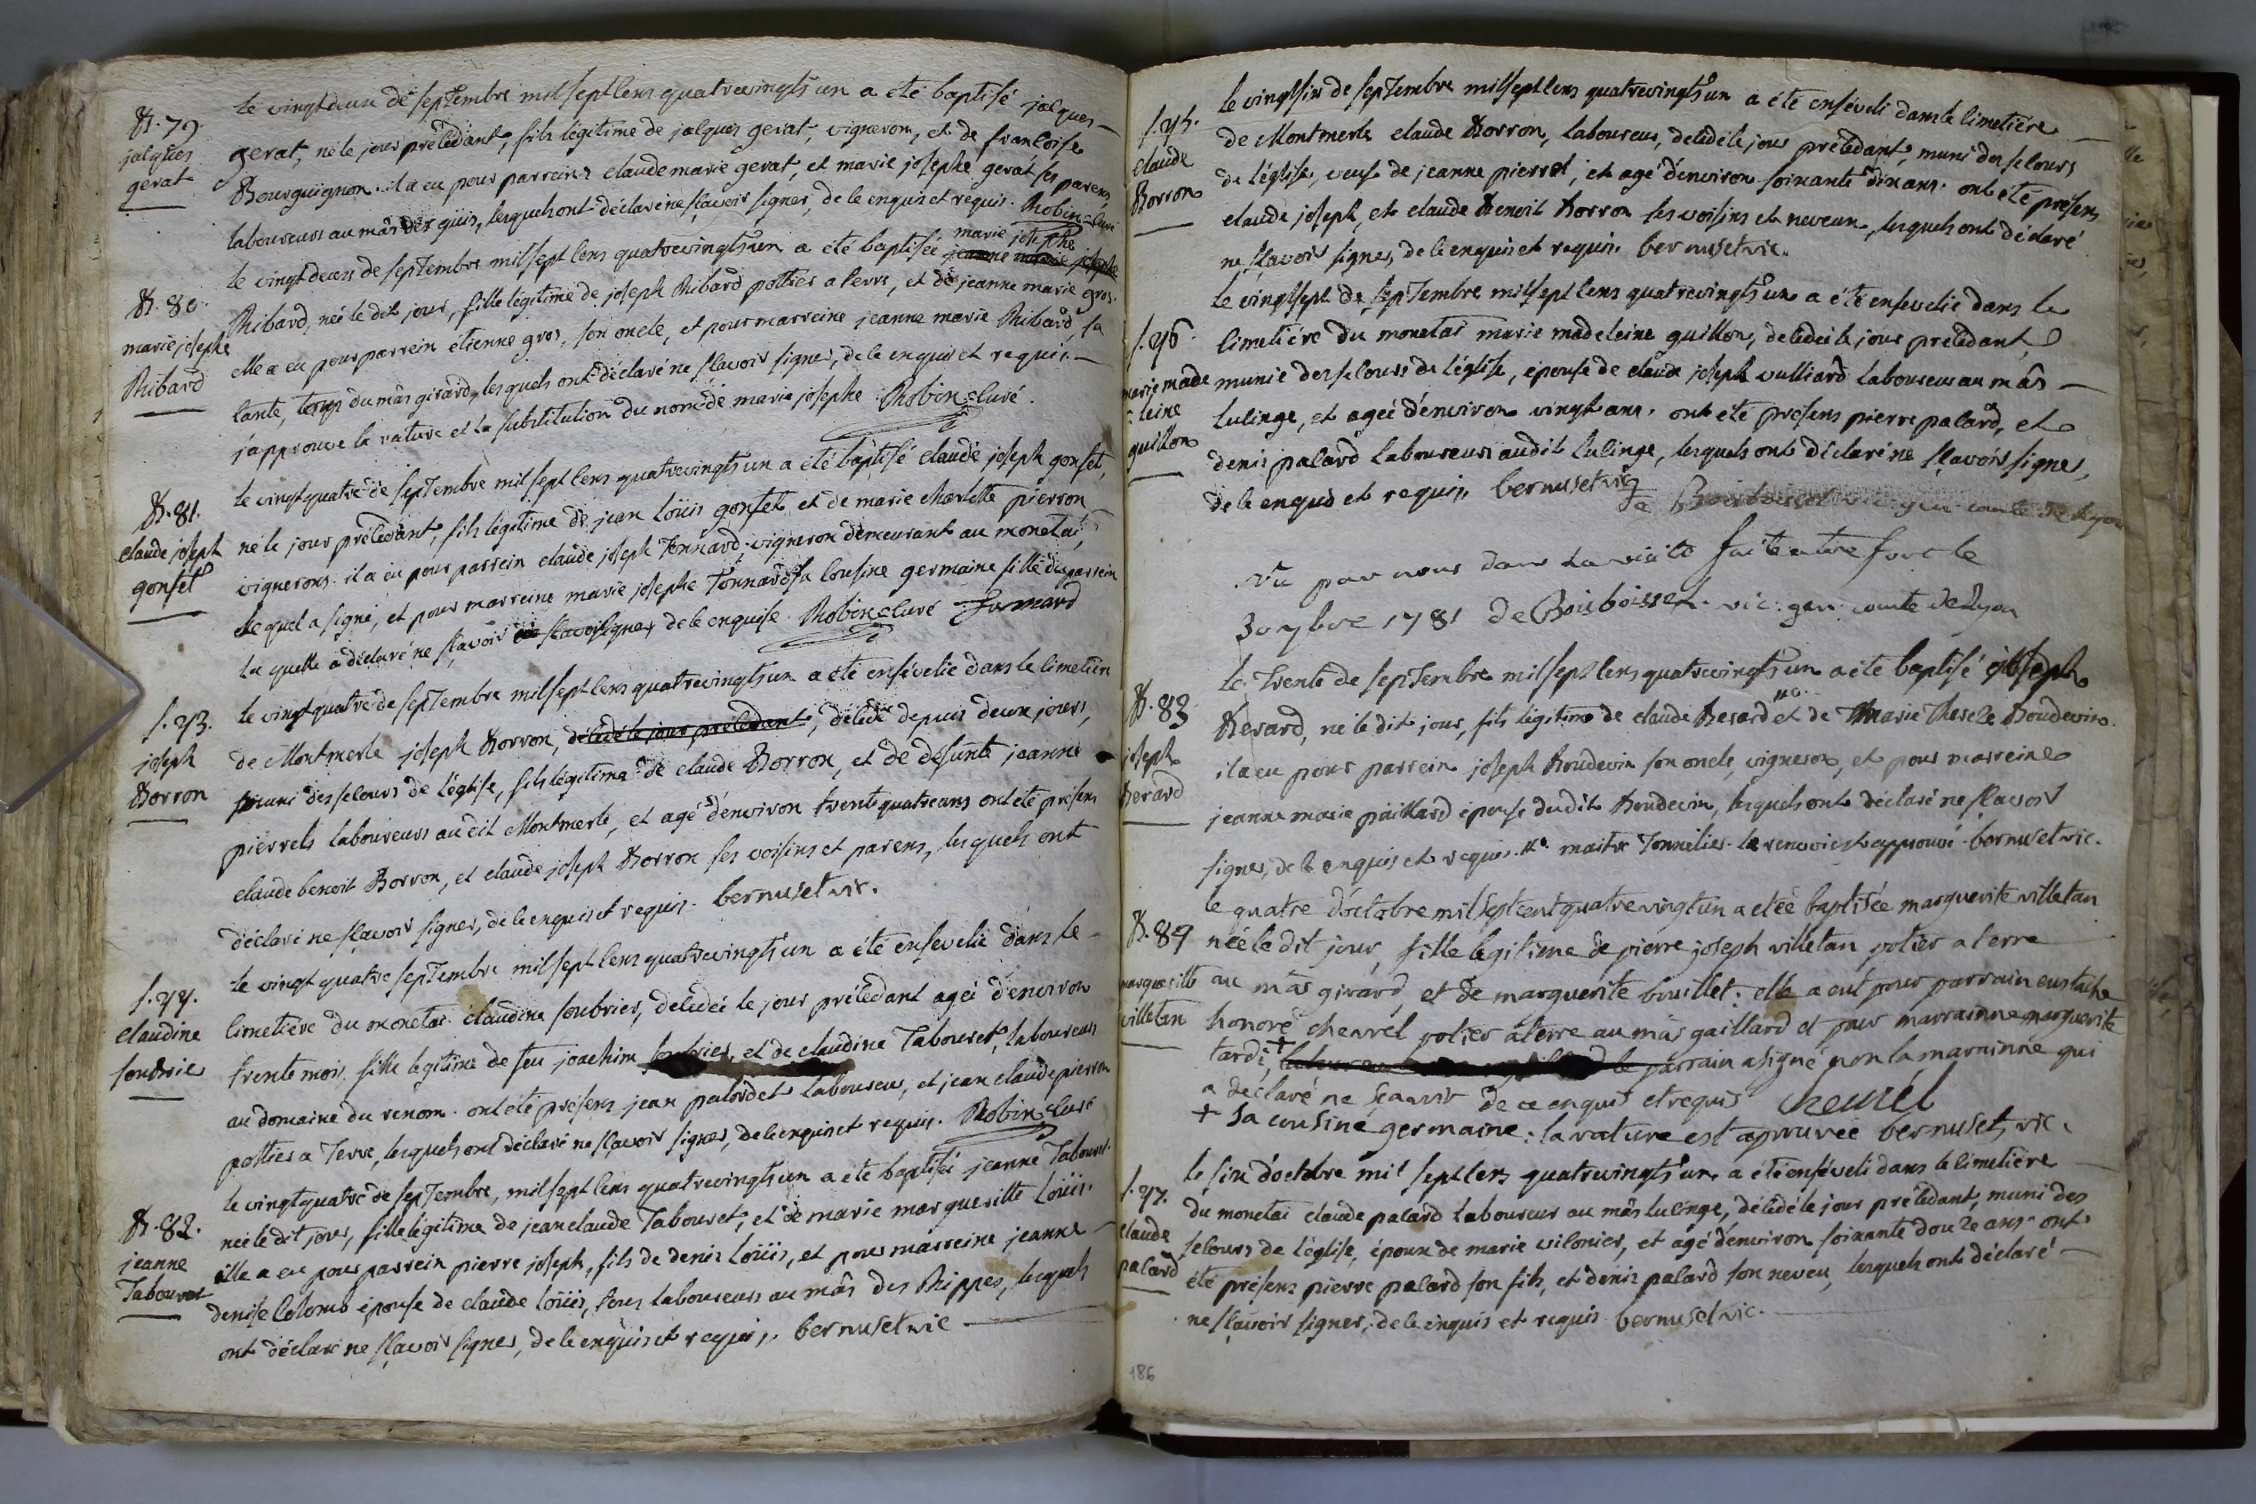 B. 79.
jacques
gerat
le vingtdeux de septembre mil sept cens quatrevingts un a été baptisé jacques
gerat, né le jour précédant, fils légitime de jacques gerat, vigneron, et de françoise
Bourguignon. il a eu pour parreins claude marie gerat, et marie josephe gerat ses parens,
laboureurs au mâs des guis, lesquels ont déclaré ne sçavoir signer, de ce enquis et requis. Robin curé
B. 80.
marie josephe
Ribard
marie josephe
le vingtdeux de septembre mil sept cens quatrevingts un a été baptisée jeanne marie josephe
Ribard, née le dit jour, fille légitime de joseph Ribard pottier a terre, et de jeanne marie gros.
elle a eu pour parrein etienne gros, son oncle, et pour marreine jeanne marie Ribard, sa
tante, tous du mâs girard, lesquels ont déclaré ne sçavoir signer, de ce enquis et requis.
j'approuve la rature et la substitution du nom de marie josephe. Robin curé.
B. 81.
claude joseph
gonset
le vingtquatre de septembre mil sept cens quatrevingts un a été baptisé claude joseph gonset,
né le jour précédant, fils légitime de jean loüis gonset, et de marie charlotte pierron,
vignerons. il a eu pour parrein claude joseph Tonnard, vigneron demeurant au monetai,
lequel a signé, et pour marreine marie josephe Tonnard sa cousine germaine fille du parrein
laquelle a déclaré ne sçavoir signer, de ce enquise. Robin curé Tonnard
S. 73.
joseph
Borron
le vingtquatre de septembre mil sept cens quatrevingts un a été ensévelie dans le cimetière
de Montmerle joseph Borron, décédé le jour précédant, décédé depuis deux jours,
muni des secours de l'église, fils légitime de claude Borron, et de défunte jeanne
pierrets laboureurs au dit Montmerle, et agé d'environ trente quatre ans ont été présens
claude benoit Borron, et claude joseph Borron ses voisins et parens, lesquels ont
déclaré ne sçavoir signer, de ce enquis et requis. bernuset vic.
S. 74.
claudine
soubrie
le vingt quatre septembre mil sept cens quatrevingts un a été ensevelie dans le
cimetière du monetai claudine soubrier, décédée le jour précédant agée d'environ
trente mois. fille legitime de feu joachim soubrier, et de claudine Tabouret, laboureurs
au domaine du renom. ont été présens jean palordet laboureur, et jean claude pierron
pottier a Terre, lesquels ont déclaré ne sçavoir signer, de ce enquis et requis. Robin curé
B. 82.
jeanne
Tabouret
le vingtquatre de septembre, mil sept cens quatrevingts un a été baptisée jeanne Tabouret
née le dit jour, fille légitime de jean claude Tabouret, et de marie margueritte Loüis.
elle a eu pour parrein pierre joseph, fils de denis Loüis, et pour marreine jeanne
denise Colomb épouse de claude Loüis, tous laboureurs au mâs des Rippes, lesquels
ont déclaré ne sçavoir signer, de ce enquis et requis. bernuset vic
S. 75.
claude
Borron
le vingtsix de septembre mil sept cens quatrevingts un a été enséveli dans le cimetière
de Montmerle claude Borron, laboureur, décédé le jour précédant, muni des secours
de l'église, veuf de jeanne pierret, et agé d'environ soixante dix ans. ont été présens
claude joseph, et claude Benoit Borron ses voisins et neveux, lesquels ont déclaré
ne sçavoir signer, de ce enquis et requis. bernuset vic.
S. 76.
marie made
leine
guillon
le vingtsept de septembre mil sept cens quatrevingts un a été ensevelie dans le
cimetière du monetai marie madeleine guillon, décédée le jour précédant,
munie des secours de l'église, épouse de claude joseph vulliard laboureur au mâs
lulinge, et agée d'environ vingt ans. ont été présens pierre palard, et
denis palard laboureurs audit lulinge, lesquels ont déclaré ne sçavoir signer,
de ce enquis et requis. bernuset vic
de Boisboissel vic. gen. comte de Lyon
Vu par nous dans la visite faite
30 7bre 1781 de Boisboissel. vic. gen. comte de Lyon
B. 83
joseph
Berard
le Trente de septembre mil sept cens quatrevingts un a été baptisé joseph
Berard, né le dit jour, fils légitime de claude Berard et de Marie Therese Boudevin.
il a eu pour parrein joseph Boudevin son oncle, vigneron, et pour marreine
jeanne marie paillard épouse dudit Boudevin, lesquels ont déclaré ne sçavoir
signer, de ce enquis et requis. maitre Tonnelier. le renvoi est approuvé. bernuset vic.
B. 89
marguerilte
villetan
le quatre d'octobre mil sept cent quatre vingt un a eté baptisée marguerite villetan
née le dit jour, fille legitime de pierre joseph villetan potier a terre
au mâs girard, et de marguerite bouillet. elle a eut pour parrain eustache
honoré cheurel potier a terre au mâs gaillard et pour marrainne marguerite
tardi + parrain a signé non la marainne qui
a déclaré ne sçavoir de ce enquis et requis Cheurel
+ sa cousine germaine. la rature est aprouvée bernuset, vic.
S. 77.
claude
palard
le six d'octobre mil sept cens quatrevingts un a été enséveli dans le cimetière
du monetai claude palard laboureur au mâs lulinge, décédé le jour précédant, muni des
secours de l'église, époux de marie vilonier, et agé d'environ soixante douze ans ont
été présens pierre palard son fils, et denis palard son neveu, lesquels ont déclaré
ne sçavoir signer, de ce enquis et requis. bernuset vic.
186